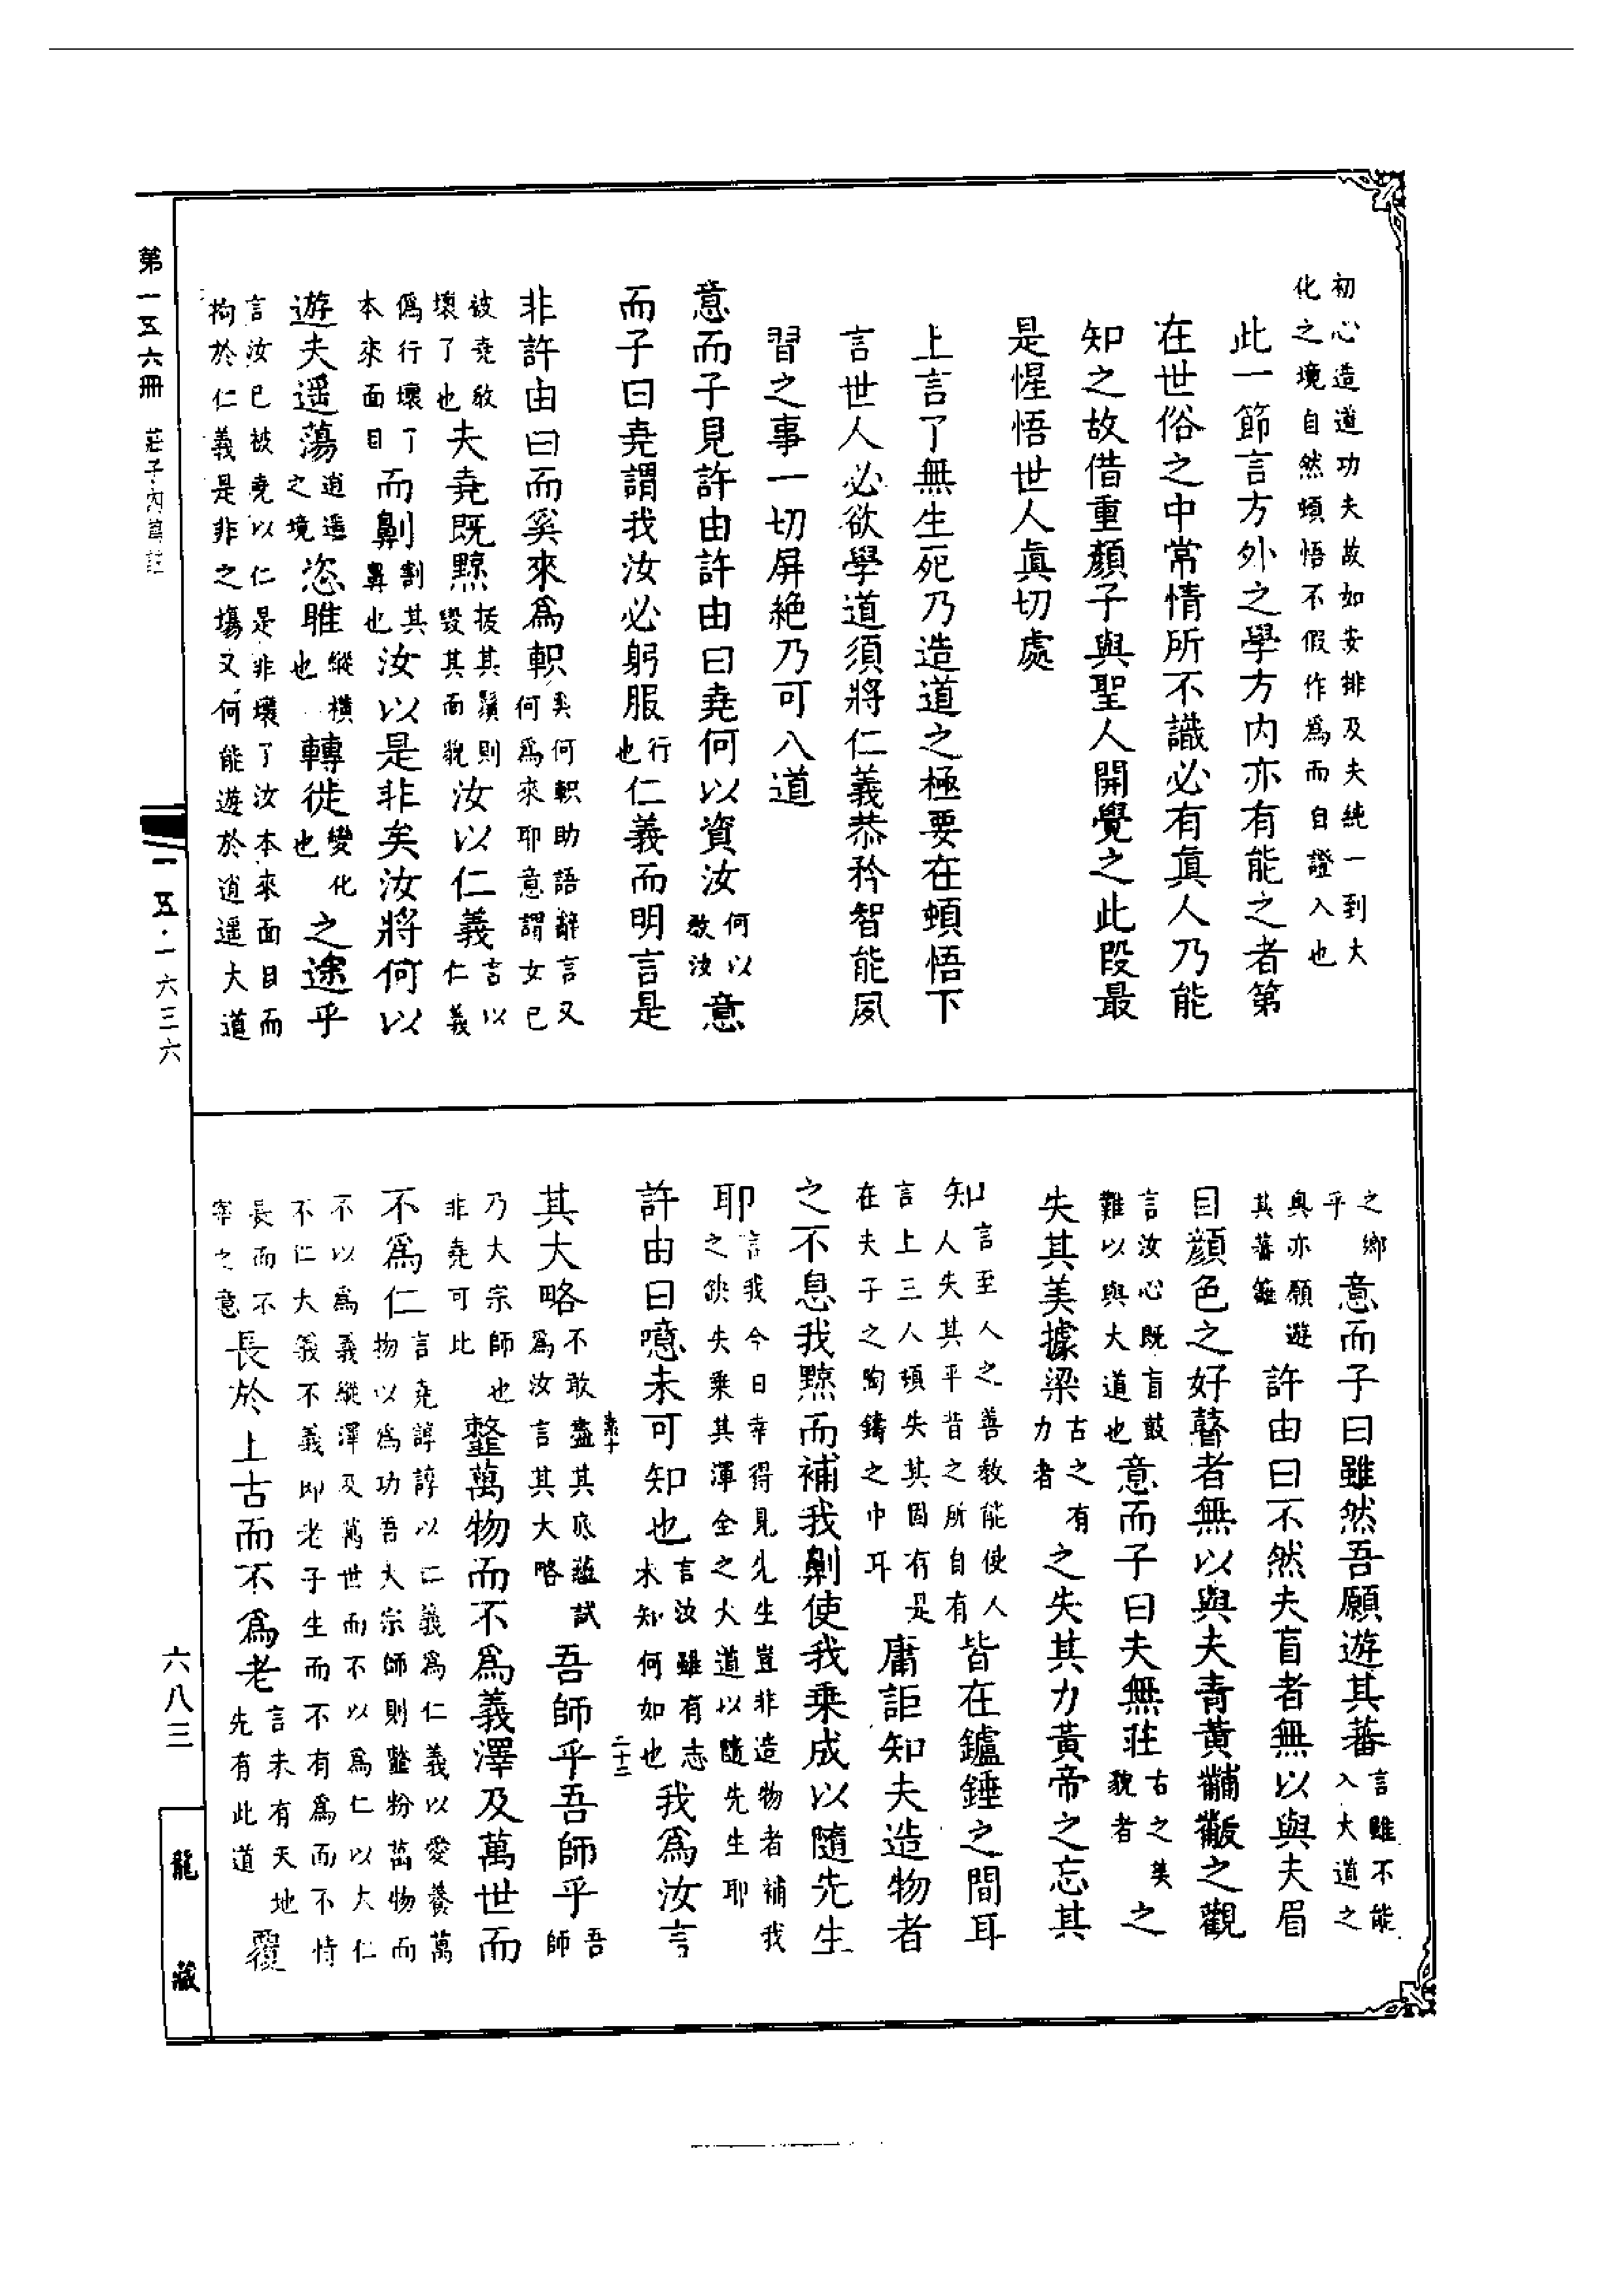 初心造道功夫故如安排及夫純一到大
化之境自然頓悟不假作爲而自證入也
此一節言方外之學方内亦有能之者第
在世俗之中常情所不識必有真人乃能
知之故借重顏子與聖人開覺之此段最
是惺悟世人真切處
上言了無生死乃造道之極要在頓悟下
言世人必欲學道須將仁義恭矜智能夙
習之事一切屏絶乃可入道
意而子見許由許由曰堯何以資汝何以教汝意
而子曰堯謂我汝必躬服行也仁義而明言是
非許由曰而奚來爲軹奚何軹助語辭言又何爲來耶意謂女已
被堯教壞了也夫堯既黥拔其鬚則毀其面貌汝以仁義言以仁義
僞行壞了本來面目而劓割其鼻也汝以是非矣汝將何以
遊夫遥蕩逍遥之境恣睢縱橫也轉徙變化也之途乎
言汝已被堯以仁是非壞了汝本來面目而
拘於仁義是非之塲又何能遊於逍遥大道
之鄉乎意而子曰雖然吾願遊其蕃言雖不能入大道之
奥亦願遊其蕃籬許由曰不然夫盲者無以與夫眉
目顏色之好瞽者無以與夫青黄黼黻之觀
言汝心既盲瞽難以與大道也意而子曰夫無莊古之美貌者之
失其美據梁古之有力者之失其力黄帝之忘其
知言至人之善教能使人人失其平昔之所自有皆在鑪錘之間耳
言上三人頓失其固有是在夫子之陶鑄之中耳庸詎知夫造物者
之不息我黥而補我劓使我乘成以隨先生
耶言我今日幸得見先生豈非造物者補我之缺失乘其渾全之大道以隨先生耶
許由曰噫未可知也言汝雖有志未知何如也我爲汝言
二十二
其大略不敢盡其底蘊試爲汝言其大略吾師乎吾師乎吾師
乃大宗師也非堯可此𩐋萬物而不爲義澤及萬世而
不爲仁言堯諄諄以仁義爲仁義以愛養萬物以爲功吾大宗師則𩐋粉萬物而
不以爲義縱澤及萬世而不以爲仁以大仁
不仁大義不義即老子生而不有爲而不恃
長而不宰之意長於上古而不爲老言未有天地先有此道覆
第一五六冊 莊子内篇註
一五·一六三六
六八三
龍藏